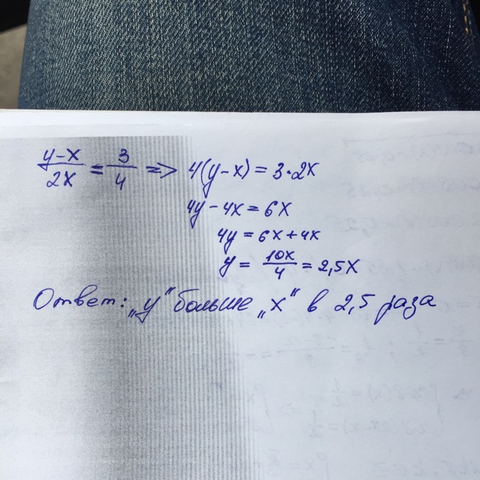 (y-x)/2x = 3/4 => 4(y-x) = 3·2x
4y - 4x = 6x
4y = 6x + 4x
y = 10x/4 = 2,5x
Ответ: „y" больше „x" в 2,5 раза